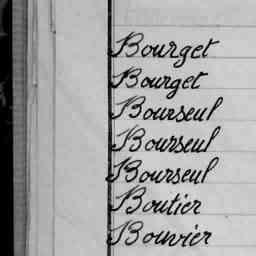 Bourget
Bourget
Bourseul
Bourseul
Bourseul
Boutier
Bouvier